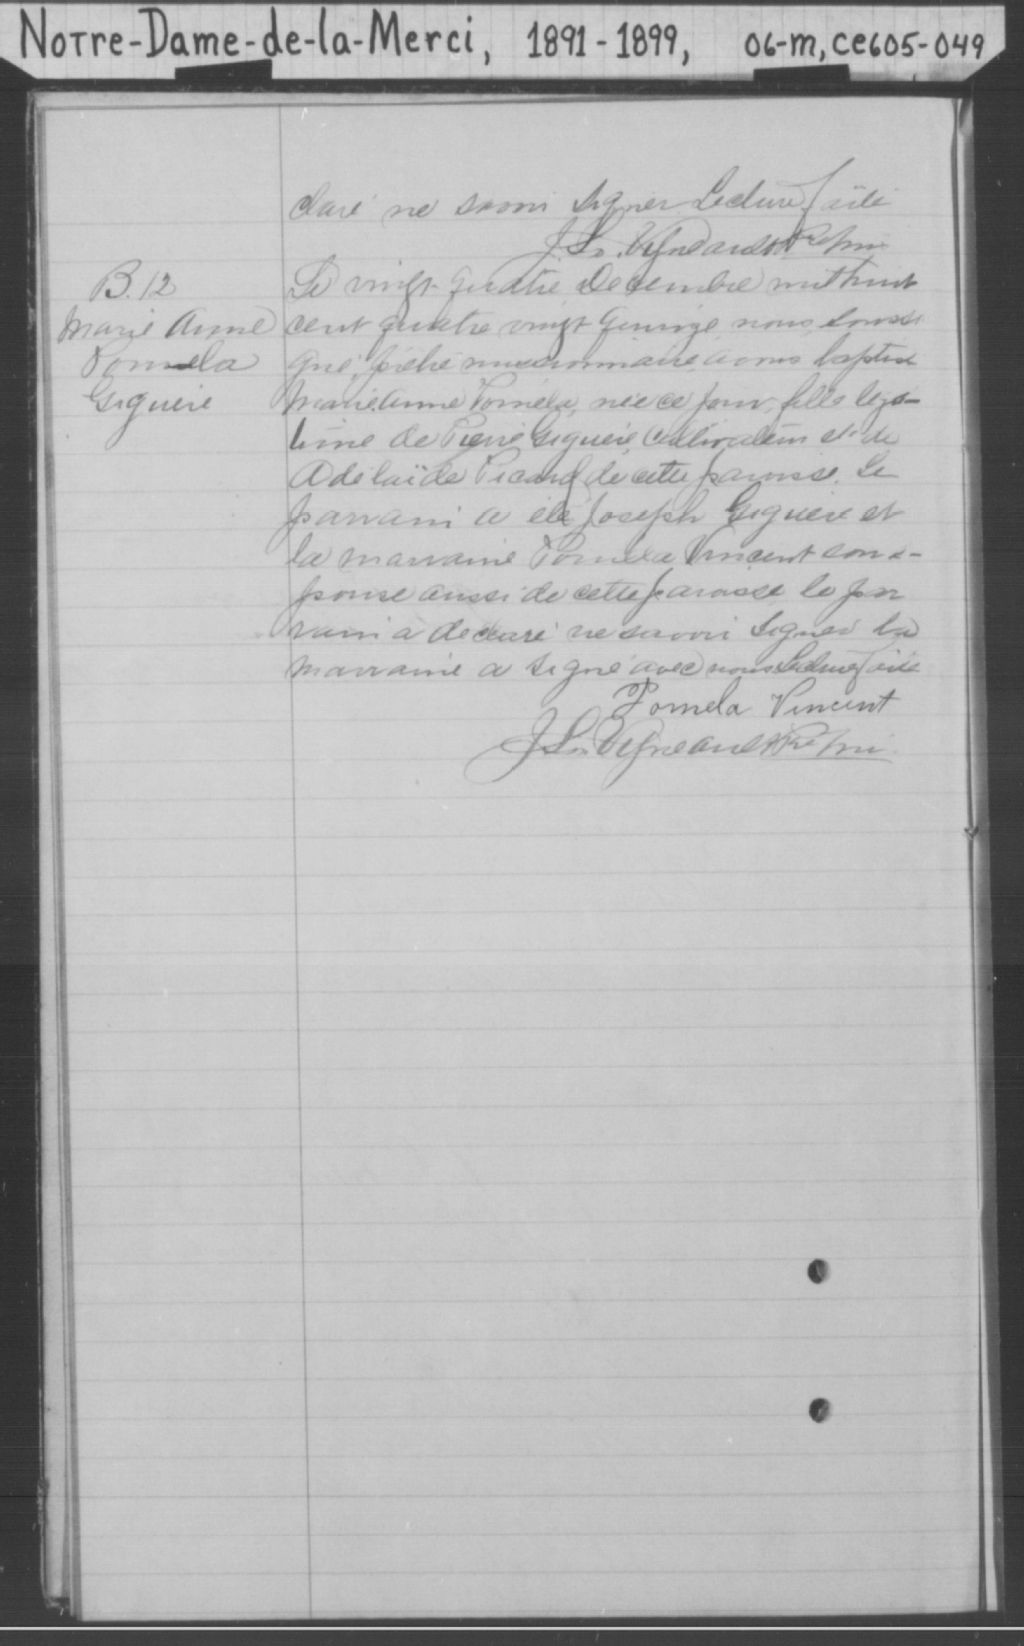 Notre-Dame-de-la-Merci, 1891-1899, 06-m, ce605-049
claré ne savoir signer Lecture faite
J. Ls. Vigneault Ptre
B. 12
Marie Anne
Pomela
Giguère
Le vingt-quatre Decembre mil huit
cent quatre vingt quinze nous soussi
gné, prêtre missionnaire avons baptisé
Marie Anne Pomela, née ce jour, fille legi-
time de Pierre Giguère, Cultivateur et de
Adelaïde Picard de cette paroisse. Le
parrain a été Joseph Giguère et
la marraine Pomela Vincent son é-
pouse aussi de cette paroisse le par
rain a declaré ne savoir signer la
marraine a signé avec nous Lecture faite
Pomela Vincent
J. Ls. Vigneault Ptre